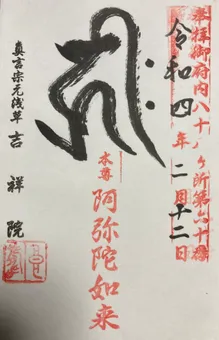 奉拝御府内八十八ヶ所第六十
令和四年二月十二日
𑖮𑖿𑖨𑖱𑖾
本尊 阿弥陀如来
真言宗元浅草 吉祥院